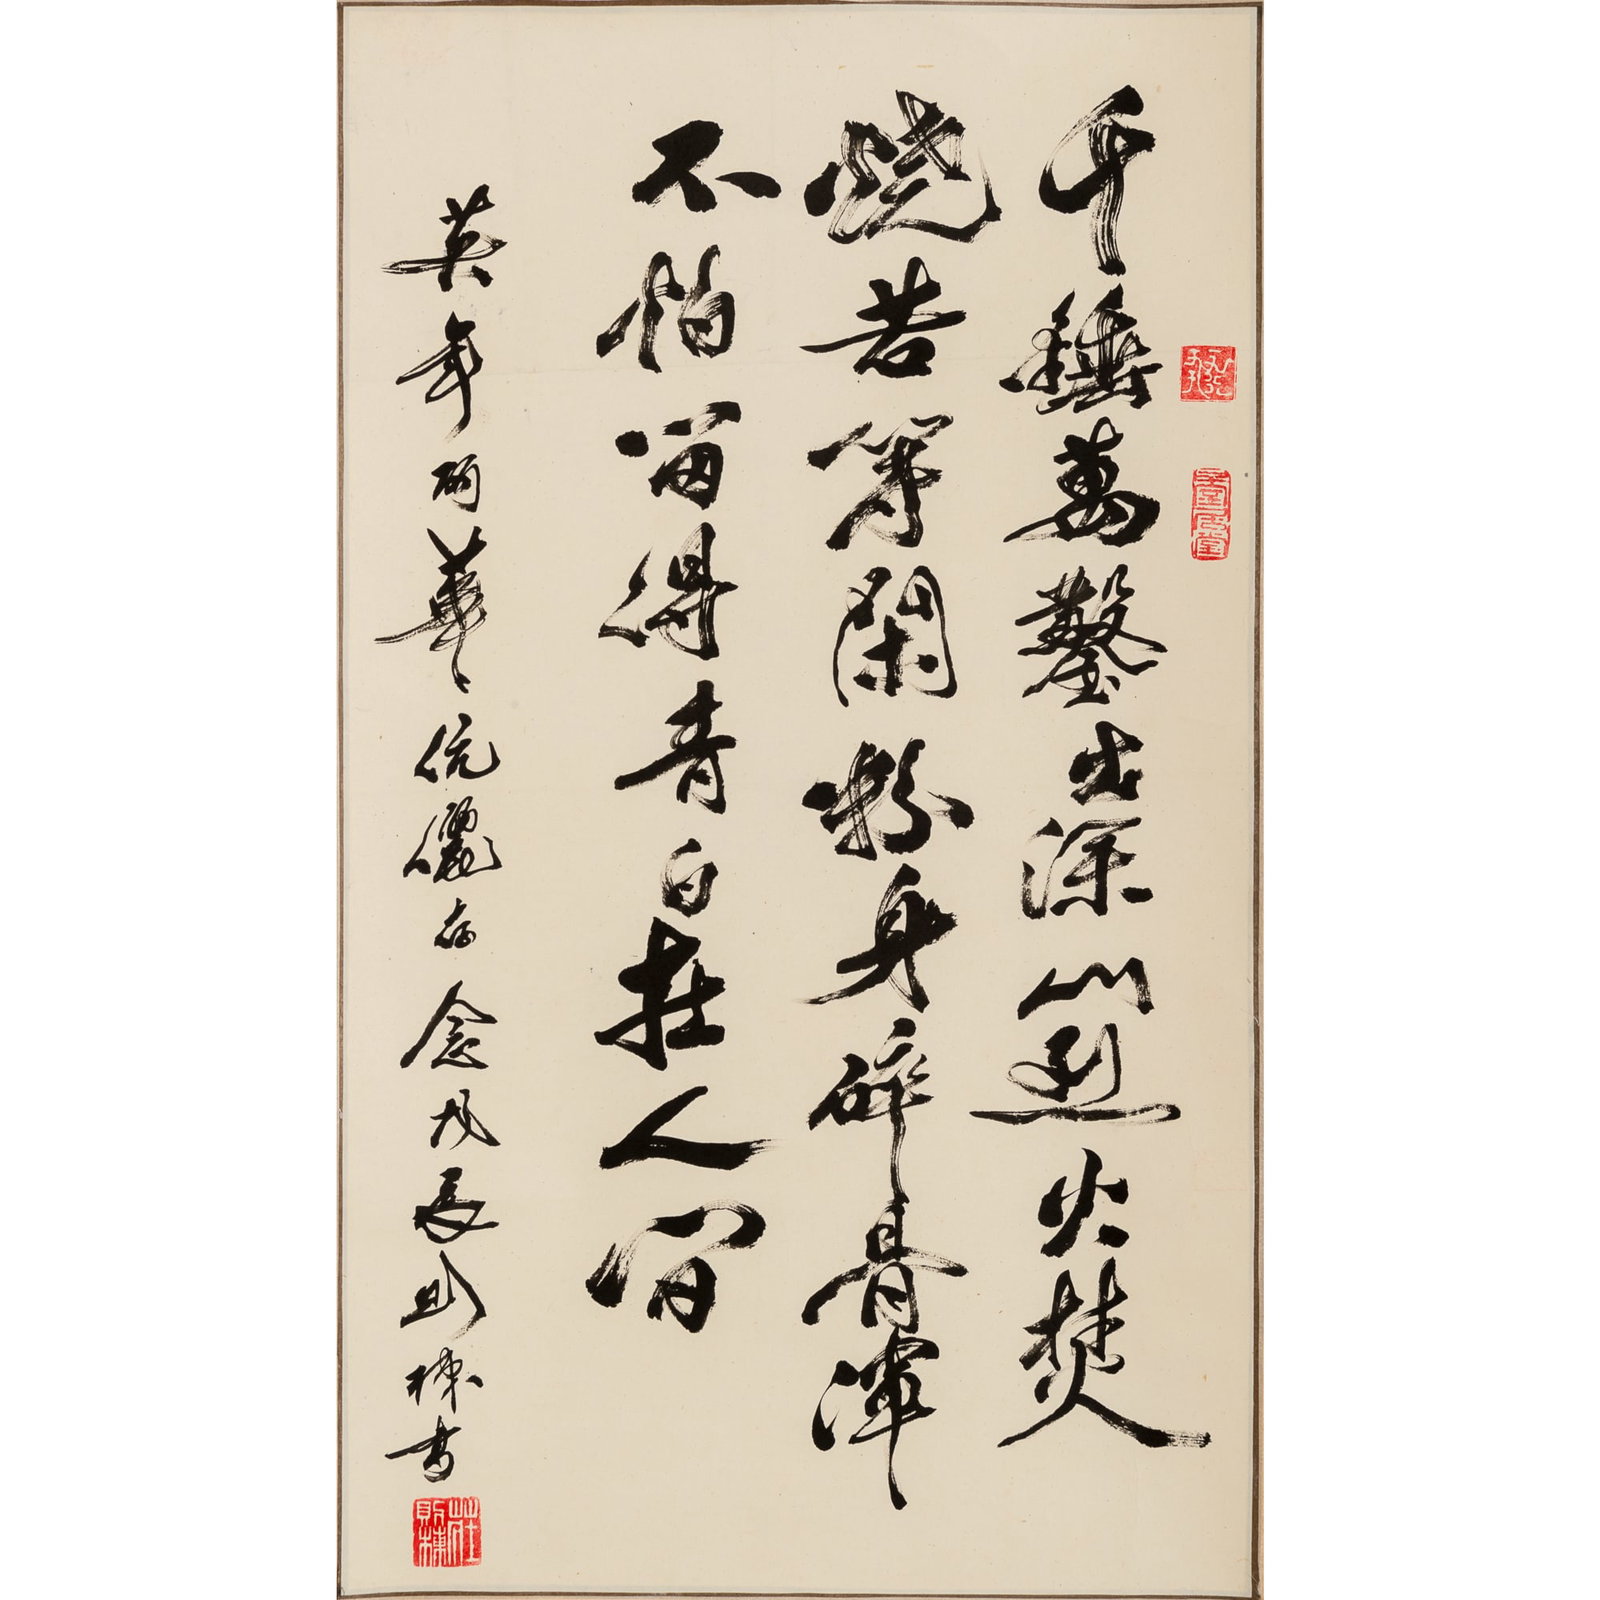 千錘萬鑿出深山烈火焚
燒若等閑粉身碎骨渾
不怕留得青白在人間
英年華伉儷存念戊辰財棟書
莊財棟